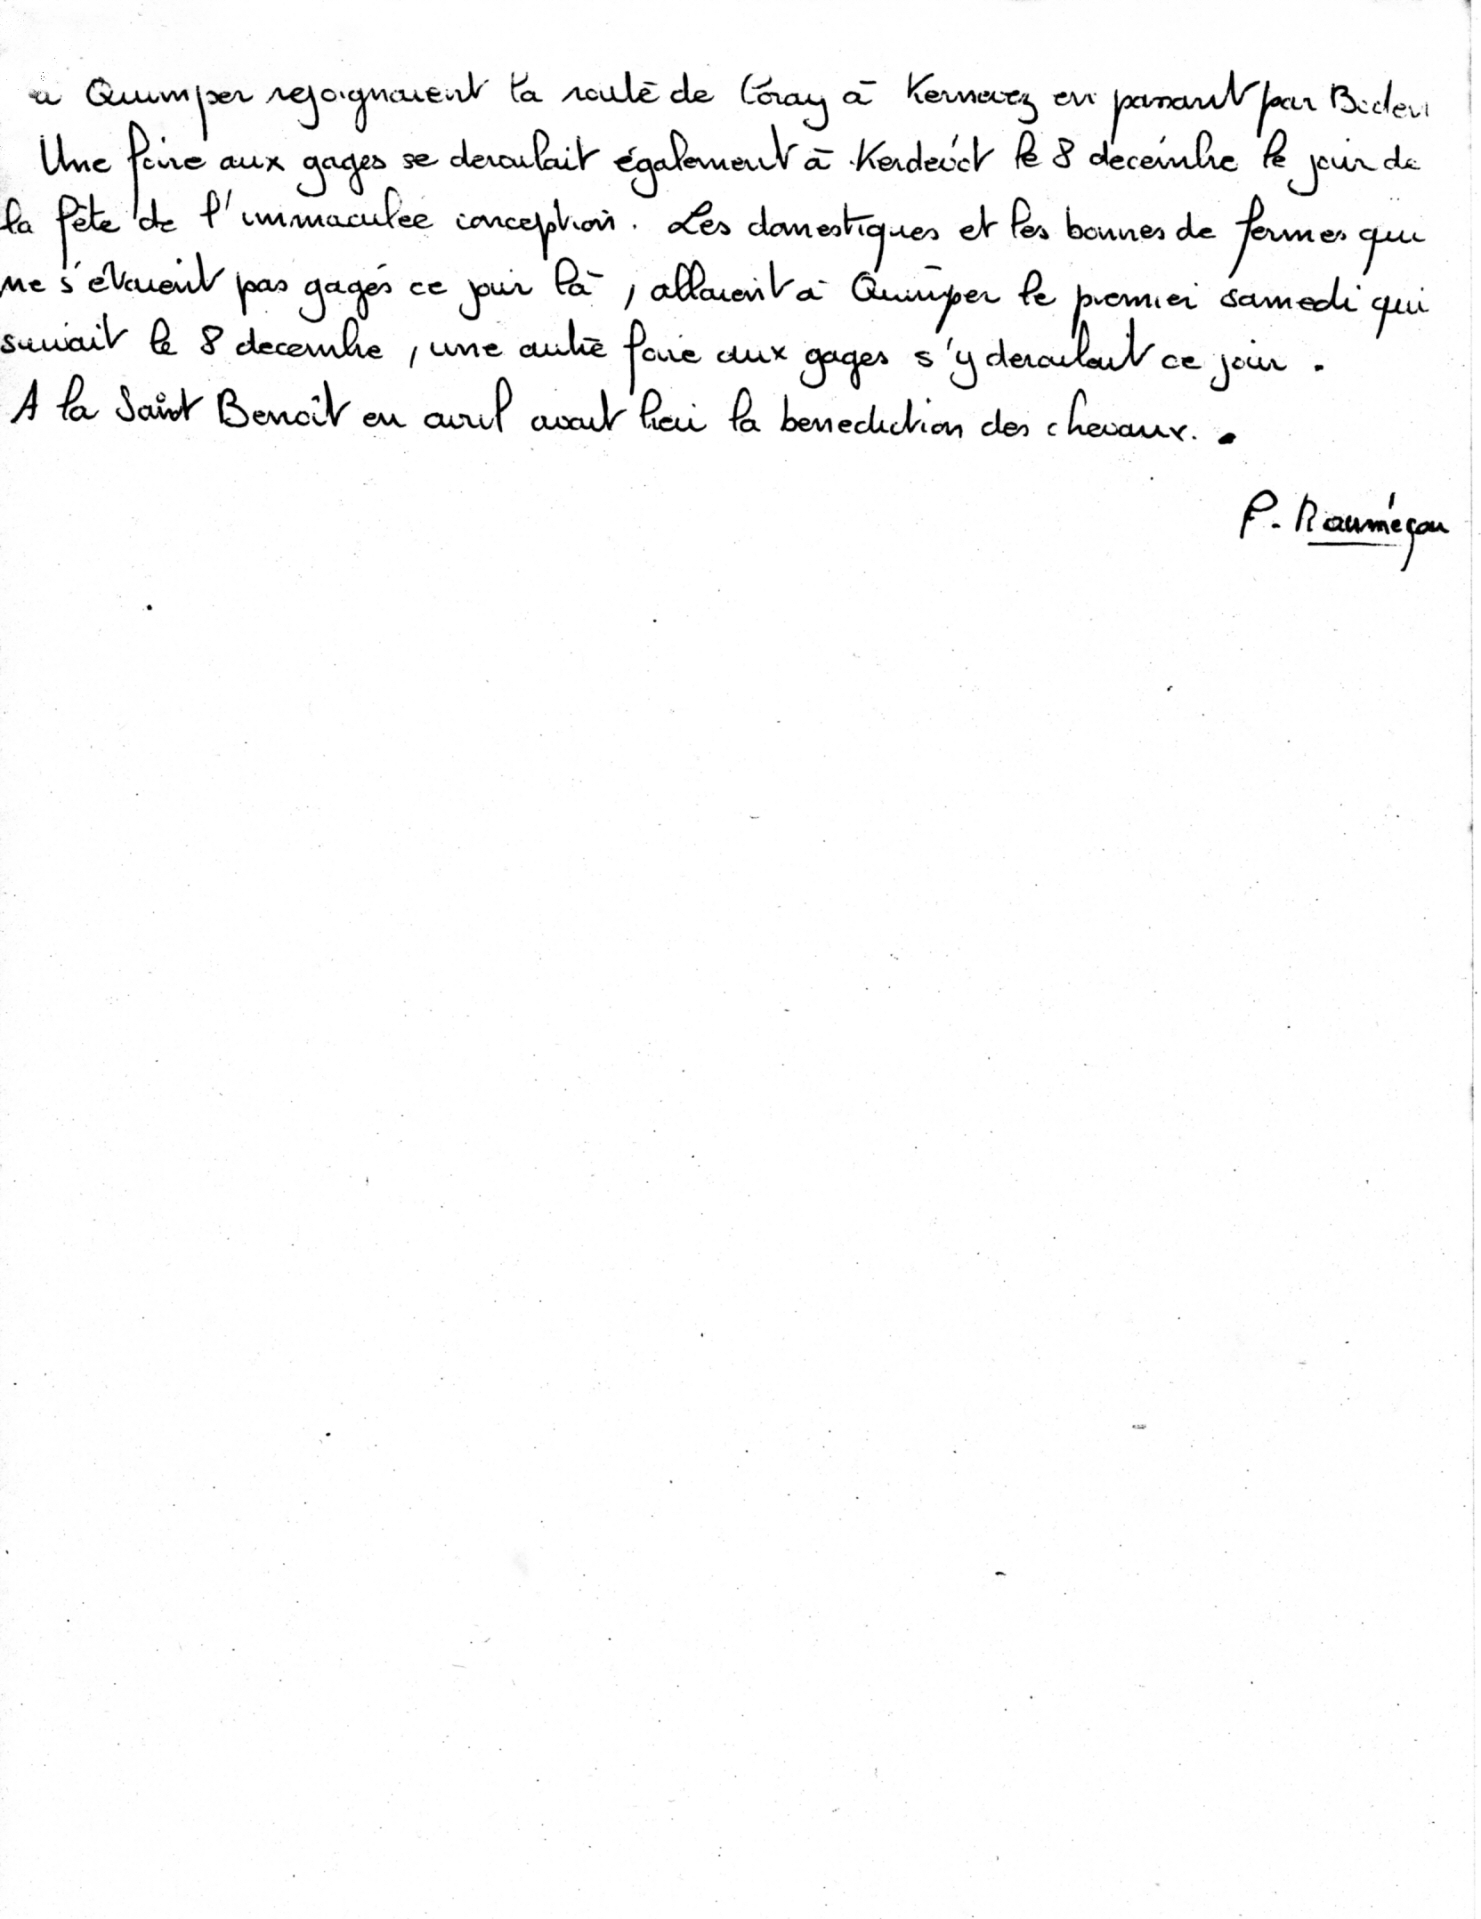 à Quimper rejoignaient la route de Coray à Kernevez en passant par
Une foire aux gages se deroulait également à Kerdevot le 8 decembre le jour de
la fête de l'immaculee conception. Les domestiques et les bonnes de fermes qui
ne s'étaient pas gagés ce jour là, allaient à Quimper le premier samedi qui
suivait le 8 decembre, une autre foire aux gages s'y deroulait ce jour.
A la Saint Benoît en avril avait lieu la benediction des chevaux.